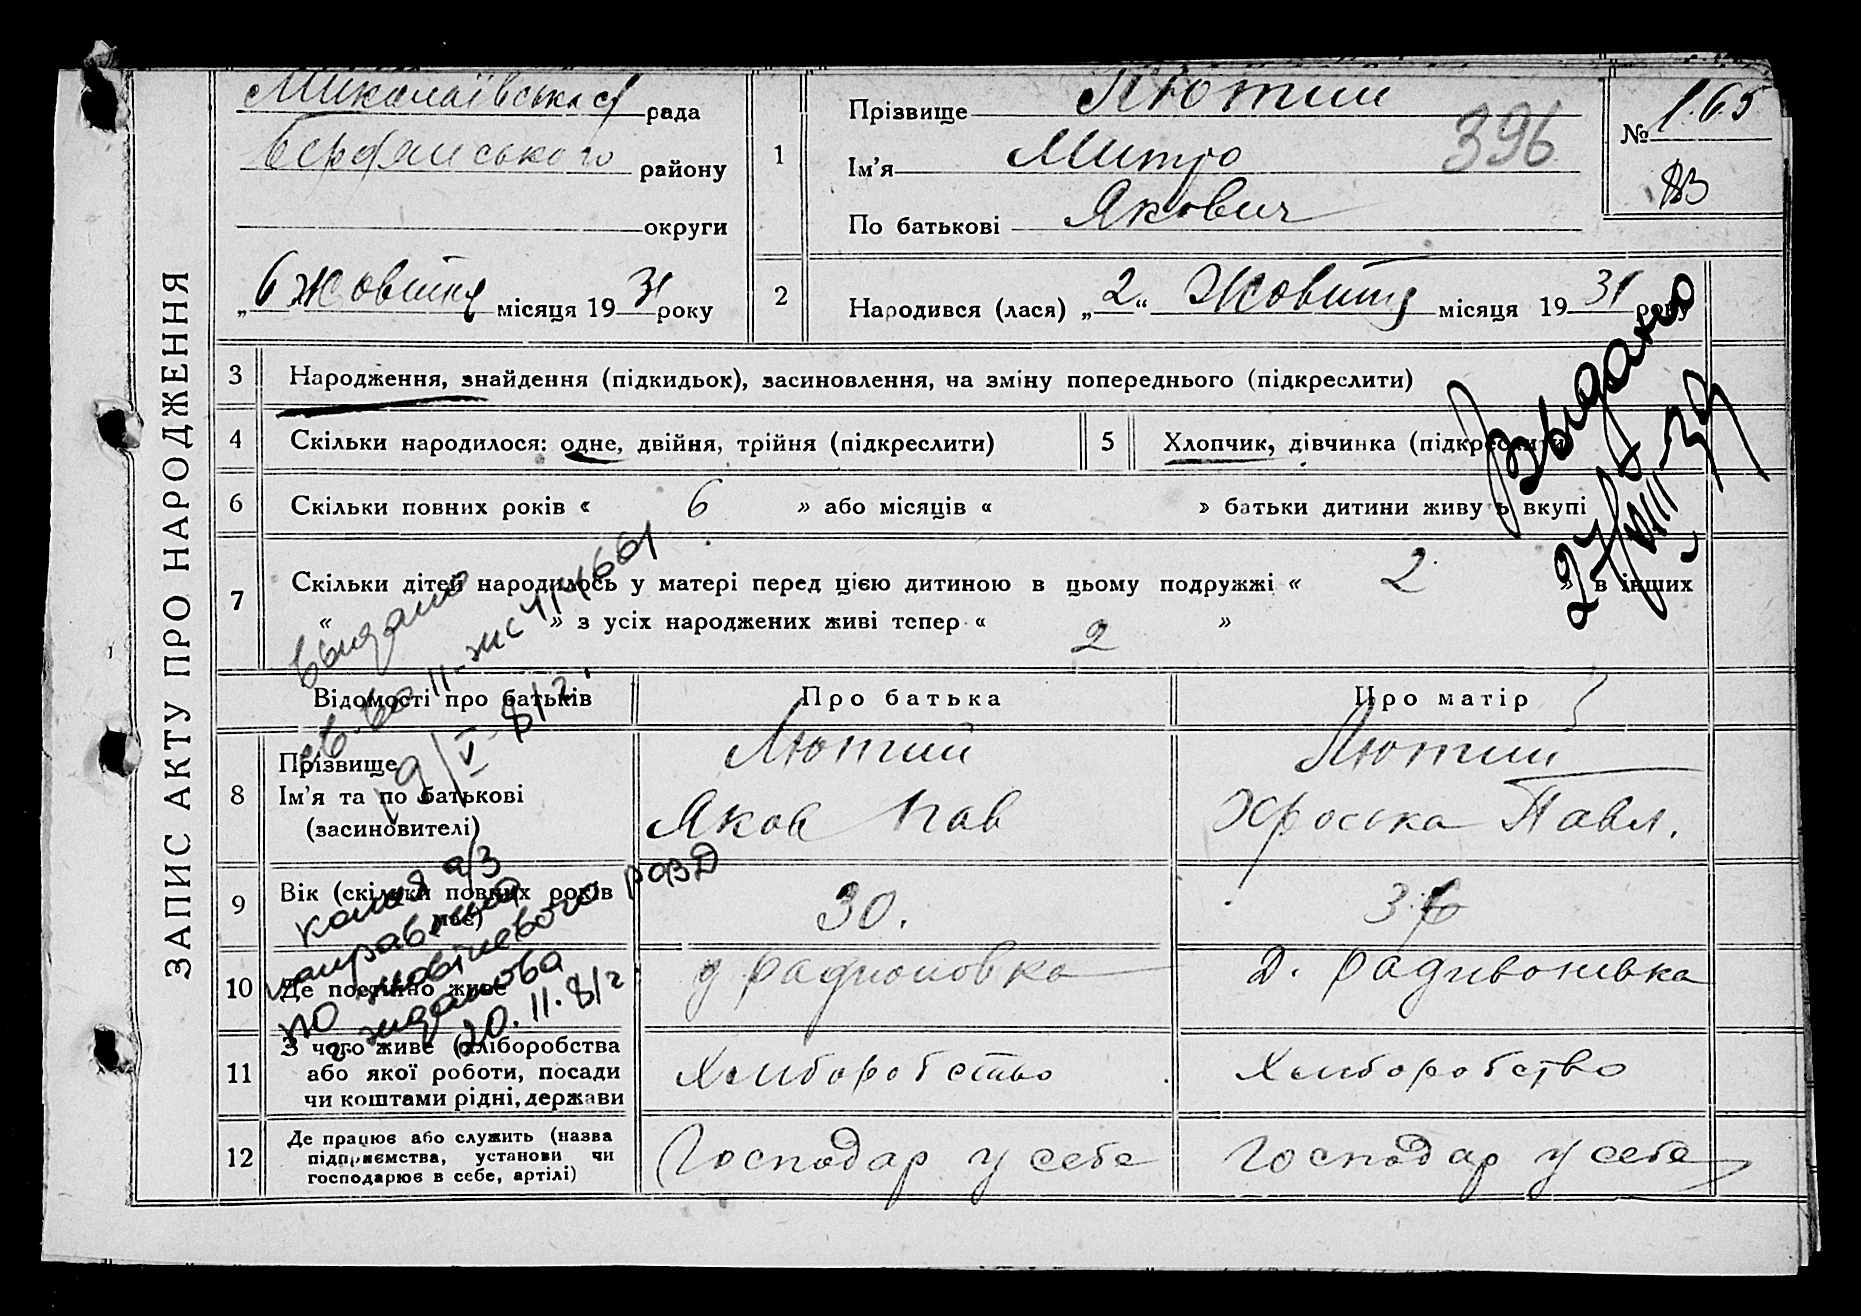 ЗАПИС АКТУ ПРО НАРОДЖЕННЯ
Миколаївська рада
Бердянського району
округи
„6 Жовтня місяця 1931 року
1
Прізвище Лютий
Ім’я Митро
По батькові Якович
396
№ 165
83
2
Народився (лася) „2“ Жовтня місяця 1931 року
3 Народження, знайдення (підкидьок), засиновлення, на зміну попереднього (підкреслити)
4 Скільки народилося: одне, двійня, трійня (підкреслити)
5 Хлопчик, дівчинка (підкреслити)
6 Скільки повних років « 6 » або місяців « » батьки дитини живуть вкупі
7 Скільки дітей народилось у матері перед цією дитиною в цьому подружжі « 2 » в інших
« » з усіх народжених живі тепер « 2 »
Выдано
27/VIII-39
Выдано
св-во II-жс 4174661
19/V-81г.
Відомості про батьків
Про батька
Про матір
8 Прізвище
Ім’я та по батькові
(засиновителі)
Лютий
Яков Пав
Лютий
Хроська Павл.
9 Вік (скільки повних років має)
30.
36
10 Де постійно живе
д Радионовка
д. Радивонівка
11 З чого живе (хліборобства
або якої роботи, посади
чи коштами рідні, держави
Хлиборобство
Хлиборобство
12 Де працює або служить (назва
підприємства, установи чи
господарює в себе, артілі)
Господар у себе
Господар у себе
копия а/з
направлена
по
г. Жданова
20.11.81г